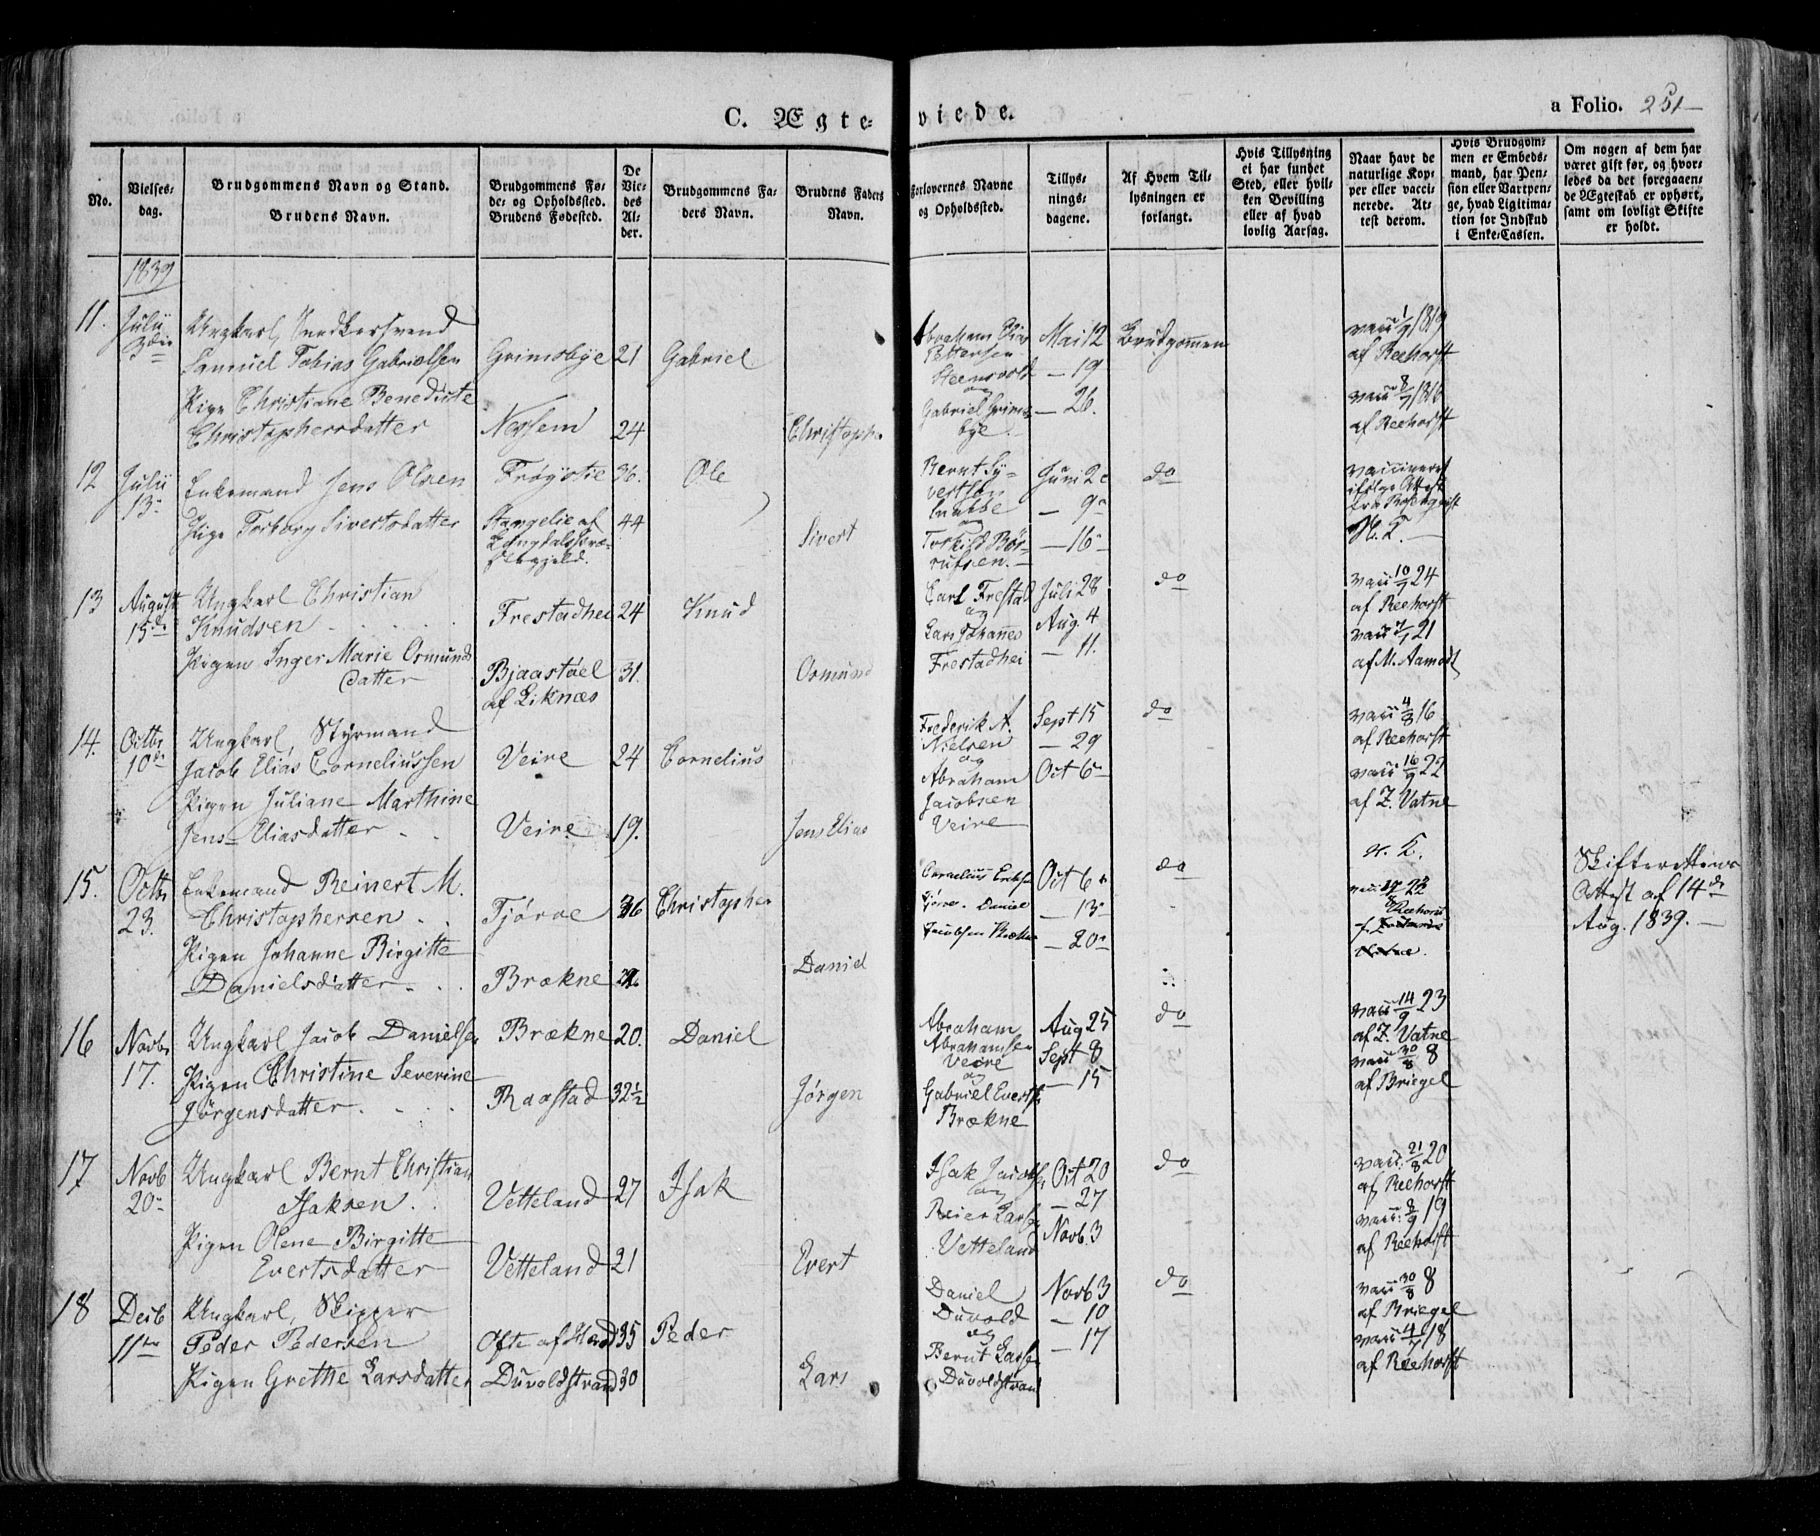 C. Ægteviede.
a Folio. 251
No.
Vielsesdag.
Brudgommens Navn og Stand.
Brudens Navn.
Brudgommens Føde- og Opholdssted.
Brudens Fødested.
De Viedes Alder.
Brudgommens Faders Navn.
Brudens Faders Navn.
Forlovernes Navne og Opholdssted.
Tillysningsdagene.
Af Hvem Tillysningen er forlangt.
Hvis Tillysning ei har fundet Sted, eller hvilken Bevilling eller af hvad lovlig Aarsag.
Naar havt de naturlige Kopper eller vaccinerede. Attest derom.
Hvis Brudgommen er Embedsmand, har Pension eller Vartpenge, hvad Legitimation for Indskud i Enke-Cassen.
Om nogen af dem har været gift før, og hvorledes da det foregaaende Ægteskab er ophørt, samt om lovligt Skifte er holdt.
1839
11. Julii 3die Ungkarl, Snedkersvend
Samuel Tobias Gabrielsen Grimsbye 21 Gabriel
Pige Christiane Benedicte
Christophersdatter 24 Christopher
Abraham
Pettersen
Steensvold
og
Gabriel Grimsbye.
Mai 12
— 19
— 26.
Brudgommen
vacc 1/9 1819
af Reehorst
vacc 8/7 1816
af Reehorst
12 Julii 13 Enkemand Jens Olsen Frøystie 36. Ole
Pige Torborg Sivertsdatter 44 Sivert
Stangelie af
Bernt Syvertsen
og
Torkild
Juni 2
— 9
— 16
do
vaccineret
ifølge Attest
fra Rosenqvist
13 August 15de Ungkarl Christian
Knudsen Frestadhei 24 Knud
Pigen Inger Marie Osmundsdatter Bjaastøel
af Liknæs 31. Osmund
Carl Frestad
og
Lars Johannes
Frestadhei
Juli 28
Aug. 4
— 11.
do
vacc 10/7 24
af Reehorst
vacc 7/7 21
af M. Aamodt
14. Octbr 10de Ungkarl, Styrmand
Jacob Elias Corneliussen Veire 24 Cornelius
Pigen Juliane Marthine
Jens Eliasdatter Veire 19. Jens Elias
Frederik A.
Nielsen
og
Abraham
Jacobsen
Veire
Sept 15
— 29
Oct 6
do
vacc 4/8 16
af Reehorst
vacc 16/9 22
af Z. Vatne
15. Octbr 23. Enkemand Reinert M.
Christophersen Tjørve 36 Christopher
Pigen Johanne Birgitte
Danielsdatter Brækne Daniel
Cornelius
Tjørve. Daniel
Jacobsen Brækne
Oct 6
— 13
— 20
do
Reehorst
Skifterettens
Attest af 14de
Aug. 1839.
16 Novbr 17. Ungkarl Jacob Danielsen Brækne 20. Daniel
Pigen Christine Severine
Jørgensdatter Raastad 32½ Jørgen
Abraham
Abrahamsen
Veire
og
Gabriel Everts
Brækne
Aug 25
Sept 8
— 15
do
vacc 14/9 23
af Z. Vatne
vacc 30/8 8
af Briegel
17 Novb 20 Ungkarl Bernt Christian
Isaksen Vetteland 27 Isak
Pigen Olene Birgitte
Evertsdatter Vetteland 21 Evert
Isak Jacobsen
og
Reier Larsen
Vetteland
Oct 20
— 27
Novb. 3
do
vacc: 21/8 20
af Reehorst
vacc: 8/9 19
af Reehorst
18 Decb 11te Ungkarl, Skipper
Peder Pedersen 35 Peder
Pigen Grethe Larsdatter Duvoldstrand 30 Lars
Daniel
Duvold
og
Bernt Larsen
Duvoldstrand
Novb 3
— 10
— 17
do
vacc 30/8 8
af Briegel
vacc 4/7 18
af Reehorst